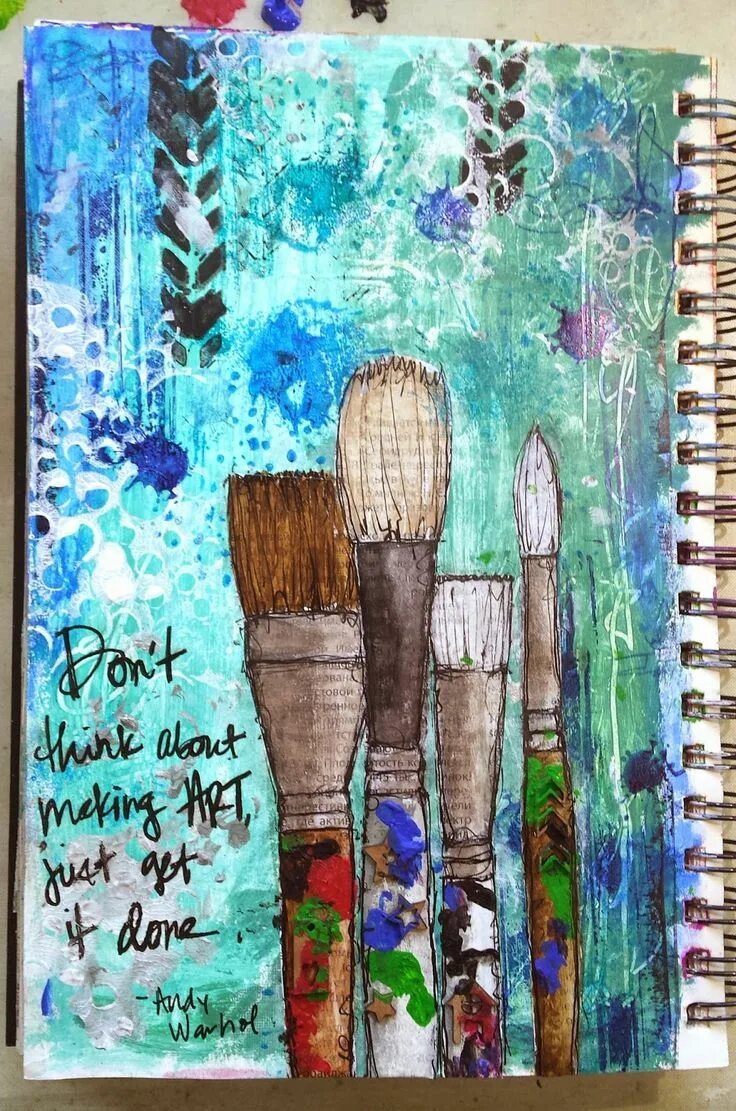 Don't
think about
making ART,
just get
it done
-Andy
Warhol